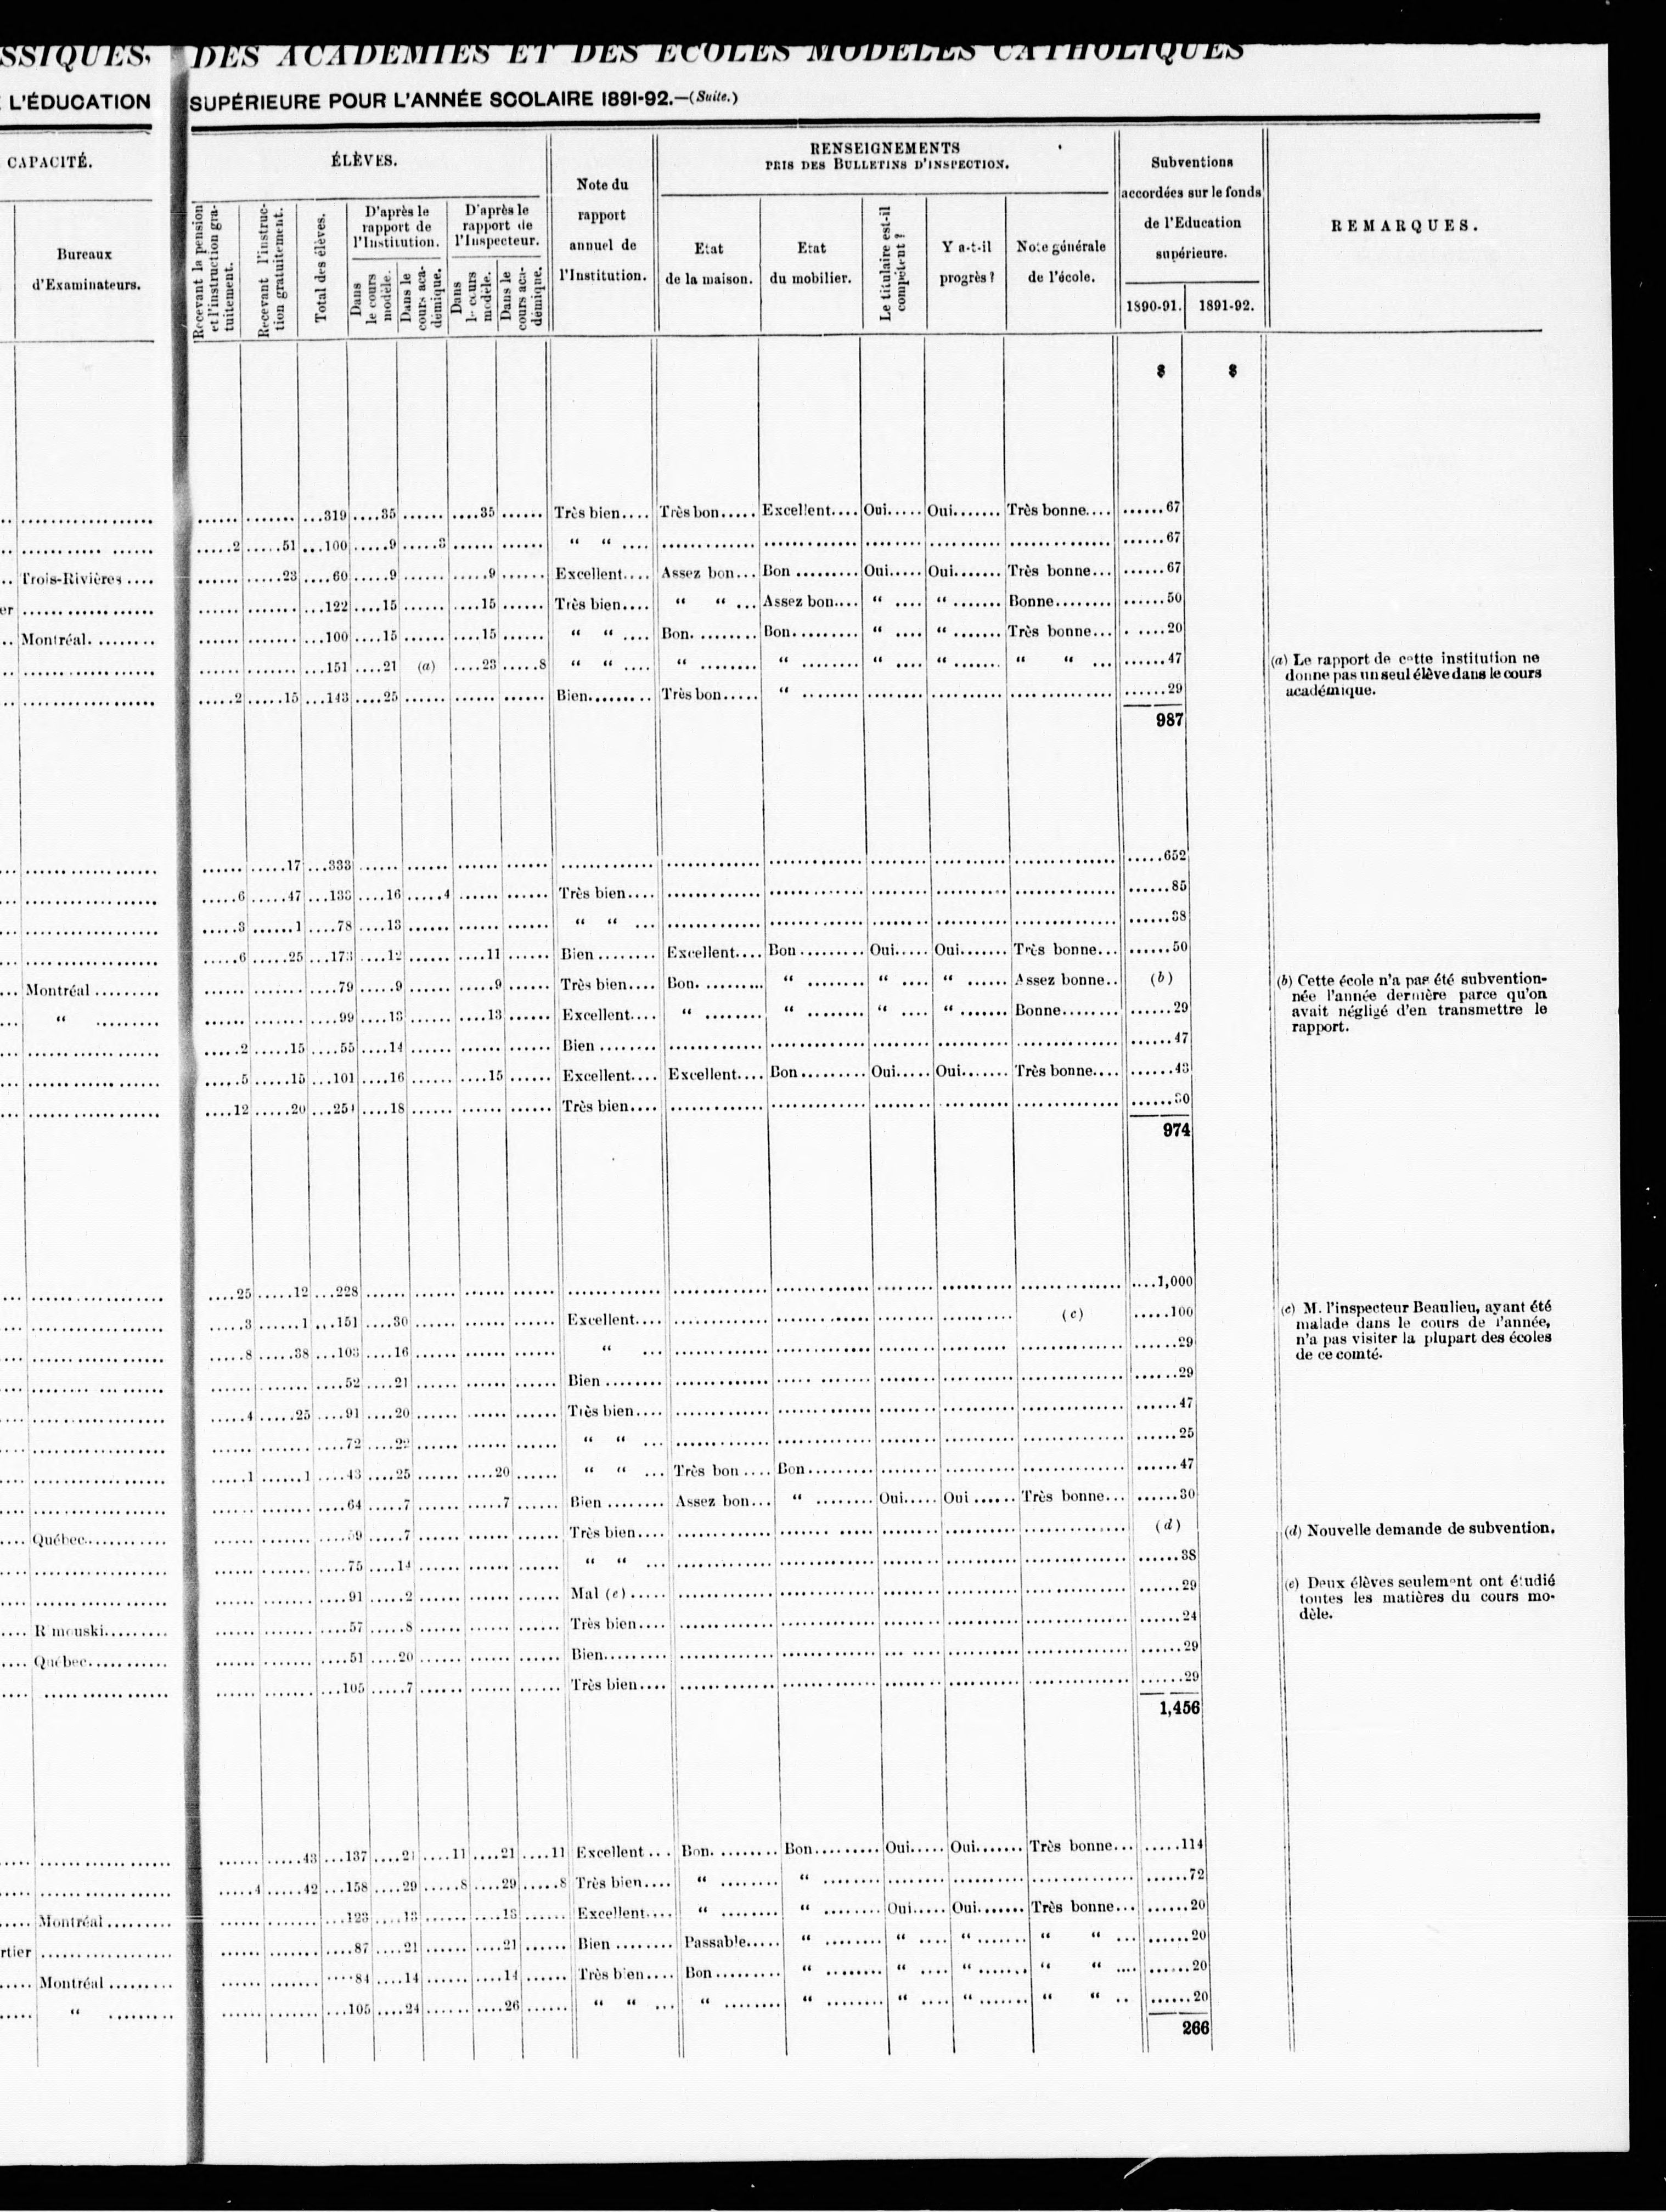 SSIQUES, DES ACADÉMIES ET DES ÉCOLES MODÈLES CATHOLIQUES
L'ÉDUCATION SUPÉRIEURE POUR L'ANNÉE SCOLAIRE 1891-92.—(Suite.)
CAPACITÉ.
Bureaux
d'Examinateurs.
ÉLÈVES.
Recevant la pension et l'instruction gratuitement.
Recevant l'instruction gratuitement.
Total des élèves.
D'après le rapport de l'Institution.
Dans le cours modèle.
Dans le cours académique.
D'après le rapport de l'Inspecteur.
Dans le cours modèle.
Dans le cours académique.
Note du rapport annuel de l'Institution.
RENSEIGNEMENTS
PRIS DES BULLETINS D'INSPECTION.
Etat de la maison.
Etat du mobilier.
Le titulaire est-il compétent ?
Y a-t-il progrès ?
Note générale de l'école.
Subventions accordées sur le fonds de l'Education supérieure.
1890-91. 1891-92.
REMARQUES.
$ $
.................. ...... ....... ...319 ....35 ...... ....35 ...... Très bien.... Très bon..... Excellent.... Oui..... Oui....... Très bonne.... ......67
........... ...... .....2 .....51 ...100 .....9 .....3 ...... ...... “ “ .... ......67
Trois-Rivières .... ...... .....23 ....60 .....9 ...... .....9 ...... Excellent.... Assez bon... Bon ......... Oui..... Oui....... Très bonne... ......67
er .................. ...... ....... ...122 ....15 ...... ....15 ...... Très bien.... “ “ ... Assez bon.... “ .... “ ....... Bonne........ ......50
Montréal. ........ ...... ....... ...100 ....15 ...... ....15 ...... “ “ .... Bon. ........ Bon.......... “ .... “ ....... Très bonne... ......20
.................. ...... ....... ...151 ....21 (a) ....23 .....8 “ “ .... “ ........ “ ........ “ .... “ ....... “ “ ... ......47
.................. .....2 .....15 ...143 ....25 ...... ...... ...... Bien......... Très bon..... “ ........ ......29
987
(a) Le rapport de cette institution ne
donne pas un seul élève dans le cours
académique.
.................. ...... .....17 ...333 ...... ...... ...... ...... .....652
.................. .....6 .....47 ...133 ....16 .....4 ...... ...... Très bien.... ......85
.................. .....3 ......1 ....78 ....13 ...... ...... ...... “ “ ... ......38
.................. .....6 .....25 ...173 ....12 ...... ....11 ...... Bien ........ Excellent.... Bon .......... Oui..... Oui....... Très bonne... ......50
Montréal ......... ...... ....... ....79 .....9 ...... .....9 ...... Très bien.... Bon. ......... “ ........ “ .... “ ...... Assez bonne.. (b)
“ ......... ...... ....... ....99 ....13 ...... ....13 ...... Excellent.... “ ........ “ ........ “ .... “ ....... Bonne........ ......29
.................. .....2 .....15 ....55 ....14 ...... ...... ...... Bien ........ ......47
.................. .....5 .....15 ...101 ....16 ...... ....15 ...... Excellent.... Excellent.... Bon.......... Oui..... Oui....... Très bonne.... ......43
.................. ....12 .....20 ...251 ....18 ...... ...... ...... Très bien.... ......30
974
(b) Cette école n'a pas été subvention-
née l'année dernière parce qu'on
avait négligé d'en transmettre le
rapport.
.................. ....25 .....12 ...228 ...... ...... ...... ...... ....1,000
.................. .....3 ......1 ...151 ....30 ...... ...... ...... Excellent.... (c) .....100
.................. .....8 .....38 ...103 ....16 ...... ...... ...... “ ... ......29
.................. ...... ....... ....52 ....21 ...... ...... ...... Bien ........ ......29
.................. .....4 .....25 ....91 ....20 ...... ...... ...... Très bien.... ......47
.................. ...... ....... ....72 ....22 ...... ...... ...... “ “ ... ......25
.................. .....1 ......1 ....43 ....25 ...... ....20 ...... “ “ ... Très bon .... Bon.......... ......47
.................. ...... ....... ....64 .....7 ...... .....7 ...... Bien ........ Assez bon... “ ........ Oui..... Oui ...... Très bonne... ......30
Québec............ ...... ....... ....59 .....7 ...... ...... ...... Très bien.... (d)
.................. ...... ....... ....75 ....14 ...... ...... ...... “ “ ... ......38
.................. ...... ....... ....91 .....2 ...... ...... ...... Mal (e)..... ......29
R mouski......... ...... ....... ....57 .....8 ...... ...... ...... Très bien.... ......24
Québec........... ...... ....... ....51 ....20 ...... ...... ...... Bien......... ......29
.................. ...... ....... ...105 .....7 ...... ...... ...... Très bien.... ......29
1,456
(c) M. l'inspecteur Beaulieu, ayant été
malade dans le cours de l'année,
n'a pas visiter la plupart des écoles
de ce comté.
(d) Nouvelle demande de subvention.
(e) Deux élèves seulement ont étudié
toutes les matières du cours mo-
dèle.
.................. ...... .....43 ...137 ....21 ....11 ....21 ....11 Excellent ... Bon. ........ Bon.......... Oui..... Oui....... Très bonne... .....114
.................. .....4 .....42 ...158 ....29 .....8 ....29 .....8 Très bien.... “ ........ “ ........ ......72
Montréal ......... ...... ....... ...123 ....13 ...... ....13 ...... Excellent.... “ ........ “ ........ Oui..... Oui....... Très bonne... ......20
rtier .................. ...... ....... ....87 ....21 ...... ....21 ...... Bien ........ Passable..... “ ........ “ .... “ ....... “ “ ... ......20
Montréal ......... ...... ....... ....84 ....14 ...... ....14 ...... Très bien.... Bon ......... “ ........ “ .... “ ....... “ “ .... ......20
“ ......... ...... ....... ...105 ....24 ...... ....26 ...... “ “ ... “ ........ “ ........ “ .... “ ....... “ “ .. ......20
266